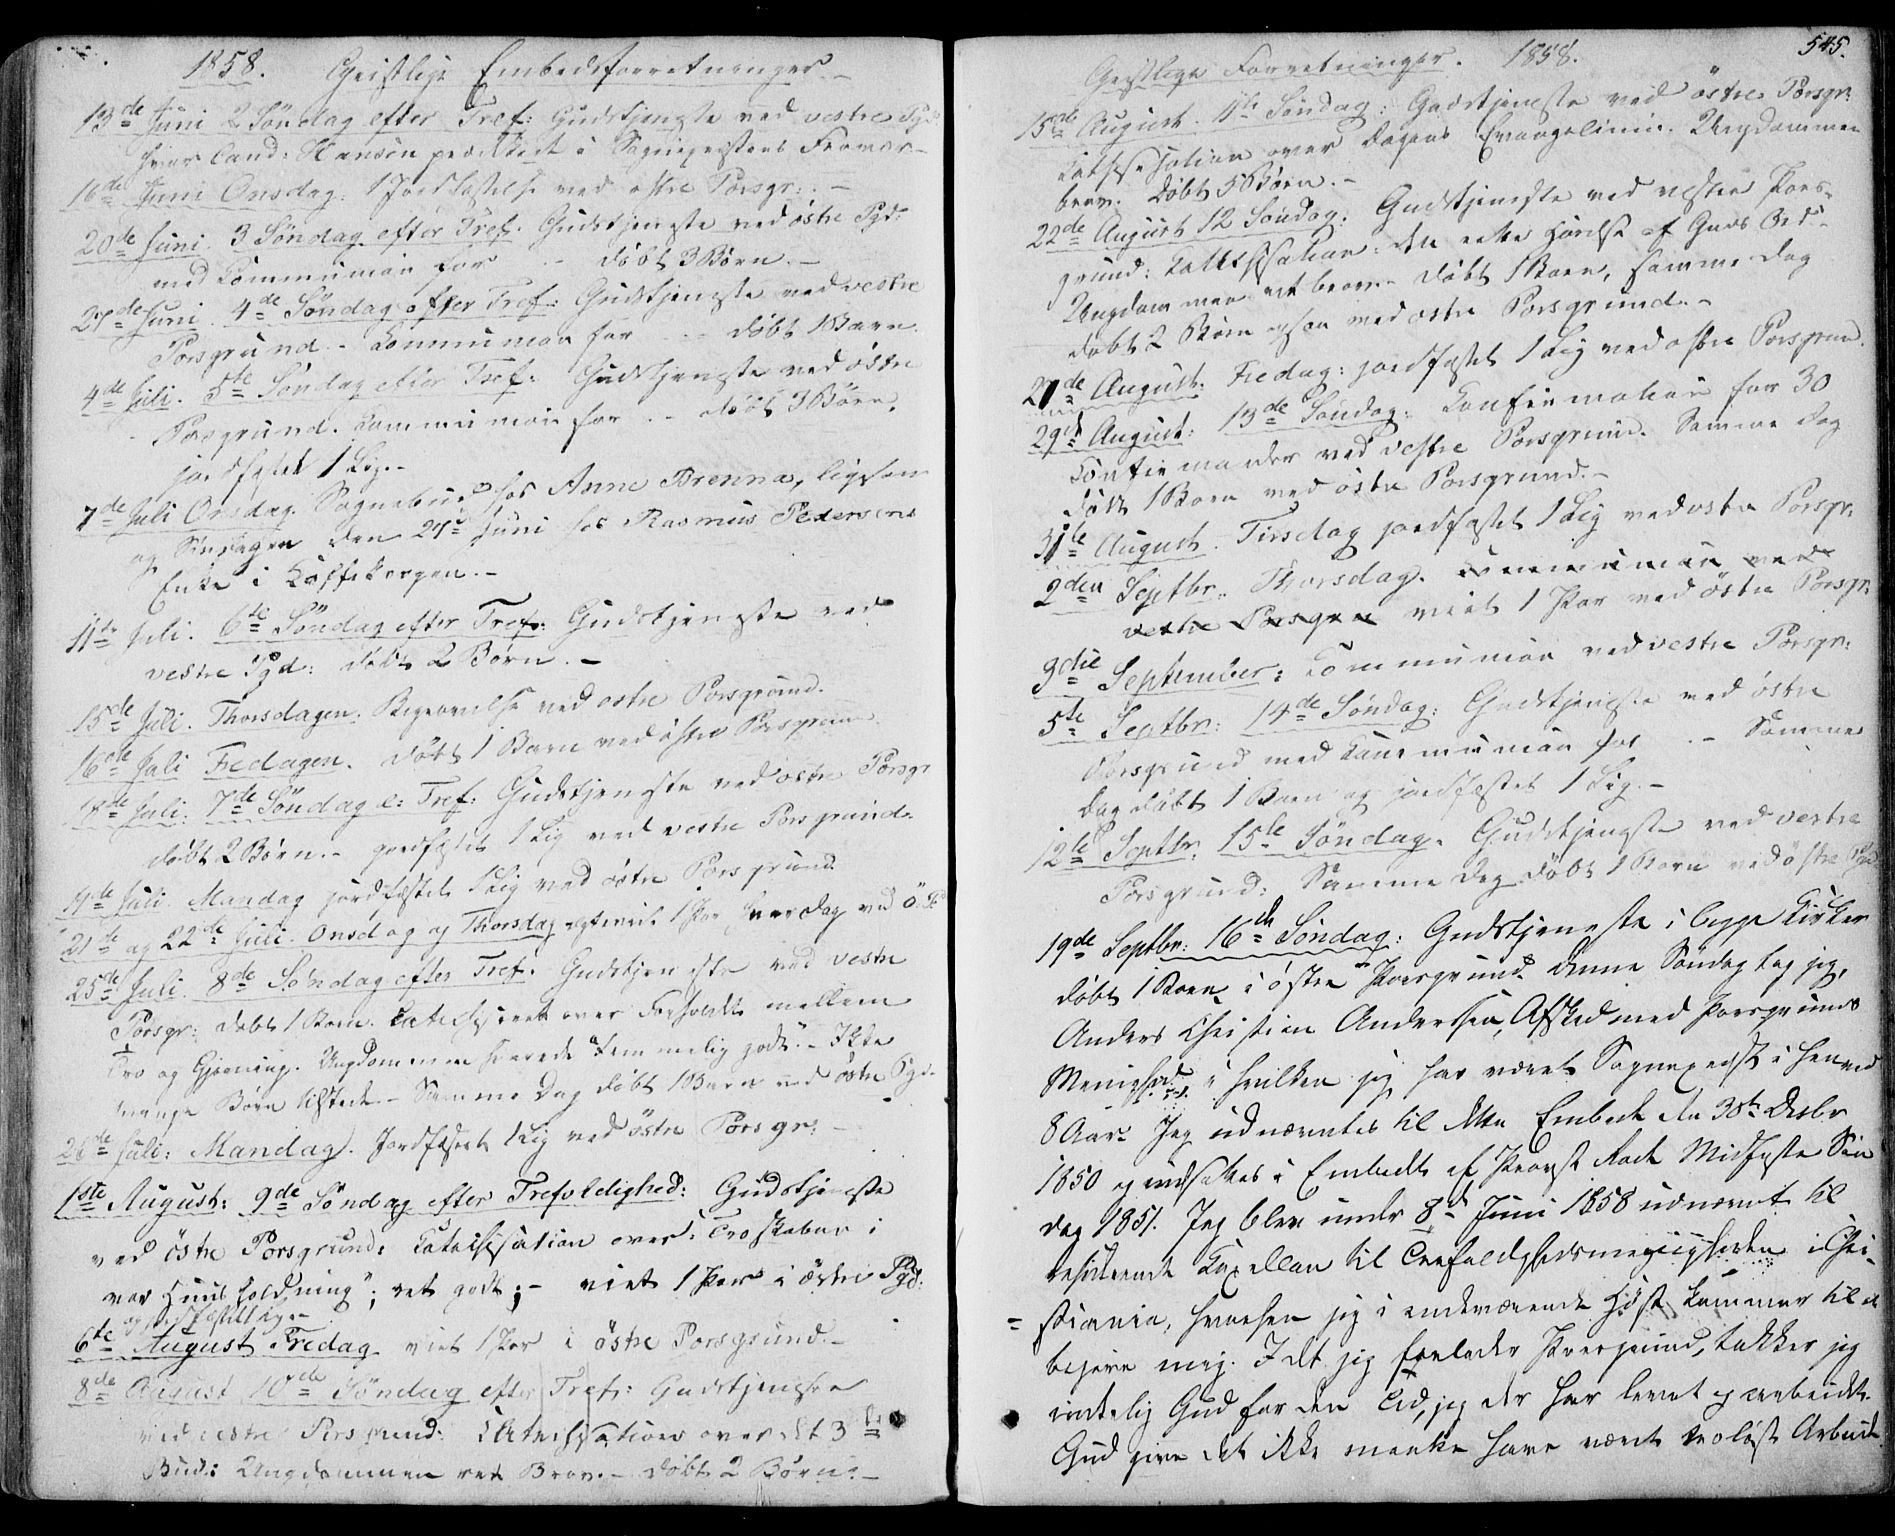 1858. Geistlige Embedsforretninger.-
13de Juni 2 Søndag efter Tref: Gudstjeneste ved vestre Pgd:
hvor Cand: Hansen prædiket i Sognepræstens
16de Juni Onsdag. 1 Jordfæstelse ved østre Porsgr:.-
20de Juni. 3 Søndag efter Tref. Gudstjeneste ved østre Pgd:
med Communion for .- døbt 3 Børn.-
27de Juni. 4de Søndag efter Tref: Gudstjeneste ved vestre
Porsgrund.- Communion for .- døbt 1 Barn.
4de Juli. 5te Søndag efter Tref: Gudstjeneste ved østre
Porsgrund. Communion for .- døbt 3 Børn.
jordfæstet 1 Lig.-
7de Juli Onsdag. Sognebud hos Anne Brenna, ligesom
og Søndagen den 27de Juni hos Rasmus Pedersens
Enke i
11te Juli. 6te Søndag efter Tref: Gudstjeneste ved
vestre Pgd: døbt 2 Børn.-
15de Juli. Thorsdagen. Begravelse ved østre Porsgrund.
16de Juli Fredagen. døbt 1 Barn ved østre Porsgrund.
18de Juli. 7de Søndag e: Tref: Gudstjeneste ved østre Porsgr
døbt 2 Børn.- jordfæstet 1 Lig ved vestre Porsgrund.
19de Juli. Mandag jordfæstet 1 Lig ved østre Porsgrund.
21de og 22de Juli. Onsdag og Thorsdag egteviet 1 Par hver dag ved Ö. P
25de Juli. 8de Søndag efter Tref. Gudstjeneste ved vestre
Porsgr: døbt 1 Barn. Catechiseret over Forholdet mellem
Tro og Gjerning. Ungdommen svarede temmelig godt.- Ikke
mange Børn tilstede.- Samme Dag døbt 1 Barn ved østre Pgd.
26de Juli: Mandag. Jordfæstet 1 Lig ved østre Porsgr.-
1ste August: 9de Søndag efter Trefoldighed: Gudstjeneste
ved östre Porsgrund: Catechisation over: Troskaben i
vor Huusholdning"; ret godt; - viet 1 Par i østre Pgd:
og jordfæstet 1 Lig.-
6te August Fredag viet 1 Par i östre Porsgrund.-
8de August 10de Søndag efter Tref: Gudstjeneste
ved vestre Porsgrund: Catechisation over det 3de
Bud: Ungdommen ret Brav.- døbt 2 Børn.-
545.
Geistlige Forretninger. 1858.
15de August. 11te Søndag: Gudstjeneste ved östre Porsgr:
Catechisation over Dagens Evangelium. Ungdommen
brav. Døbt 5 Børn.-
22de August 12 Søndag. Gudstjeneste ved vestre Pors-
grund: Catechisation: den rette Hørelse af Guds Ord.-
Ungdommen ret brav.- døbt 1 Barn, samme Dag
døbt 2 Børn ogsaa ved østre Porsgrund.-
27de August. Fredag: jordfæstet 1 Lig ved østre Porsgrund.
29de August: 13de Søndag. Confirmation for 30
Confirmander ved vestre Porsgrund. Samme Dag
døbt 1 Barn ved östre Porsgrund.-
31te August. Tirsdag jordfæstet 1 Lig ved østre Porsgr.
2den Septbr. Thorsdag. Communion ved
vestre Porsgru viet 1 Par ved östre Porsgr:
9die September: Communion ved vestre Porsgr:
5te Septbr: 14de Søndag: Gudstjeneste ved östre
Porsgrund med Communion for .- Samme
Dag døbt 1 Barn og jordfæstet 1 Lig.-
12te Septbr. 15te Søndag. Gudstjeneste ved vestre
Porsgrund: Samme Dag døbt 1 Barn ved østre Pgd
19de Septbr: 16de Søndag: Gudstjeneste i begge Kirker
døbt 1 Barn i østre Porsgrund. Denne Søndag tog jeg,
Anders Christian Anderssen, Afsked med Porsgrunds
Menighed, i hvilken jeg har været Sognepræst i henved
8 Aar. Jeg udnævntes til dette Embede den 30te Decbr
1850 og indsattes i Embedet af Provst Rode Midfaste Søn
dag 1851. Jeg blev under 8de Juni 1858 udnævnt til
residerende Capellan til Trefoldighedsmenigheden i Chri-
stiania, hvorhen jeg i indeværende Høst kommer til at
begive mig. Idet jeg forlader Porsgrund, takker jeg
inderlig Gud for den Tid, jeg der har levet og arbeidet.
Gud give det ikke maatte have været trolöst Arbeide